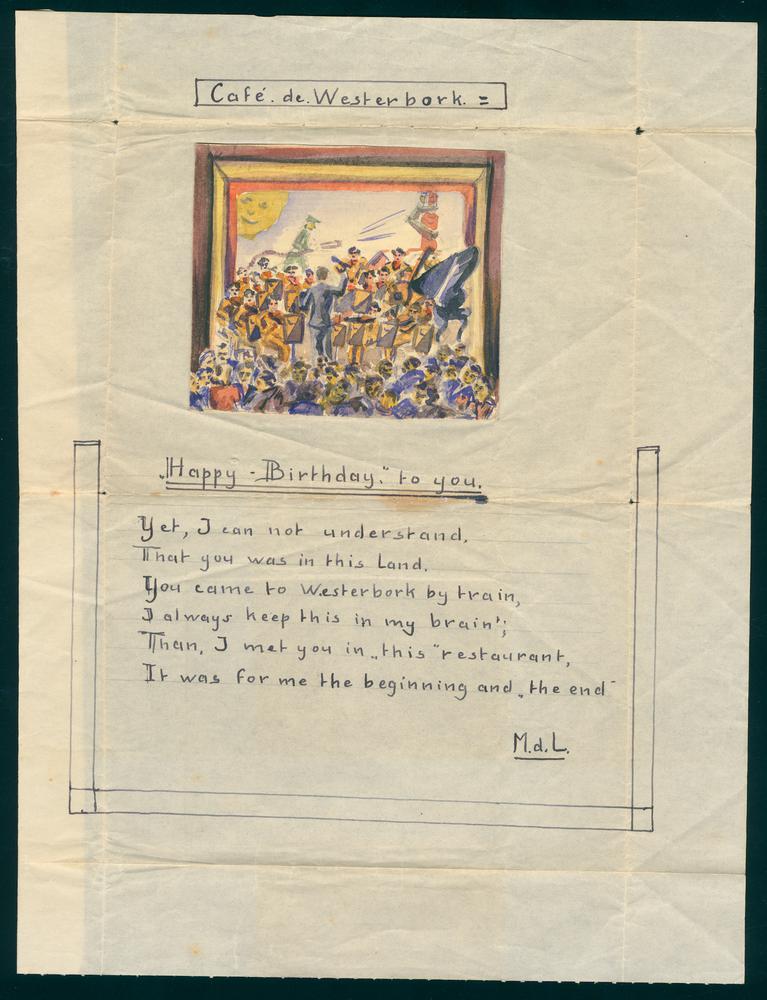 Café. de. Westerbork. =
„Happy - Birthday." to you.
Yet, I can not understand,
That you was in this Land.
You came to Westerbork by train,
I always keep this in my brain";
Than, I met you in „this" restaurant,
It was for me the beginning and „the end"
M.d.L.